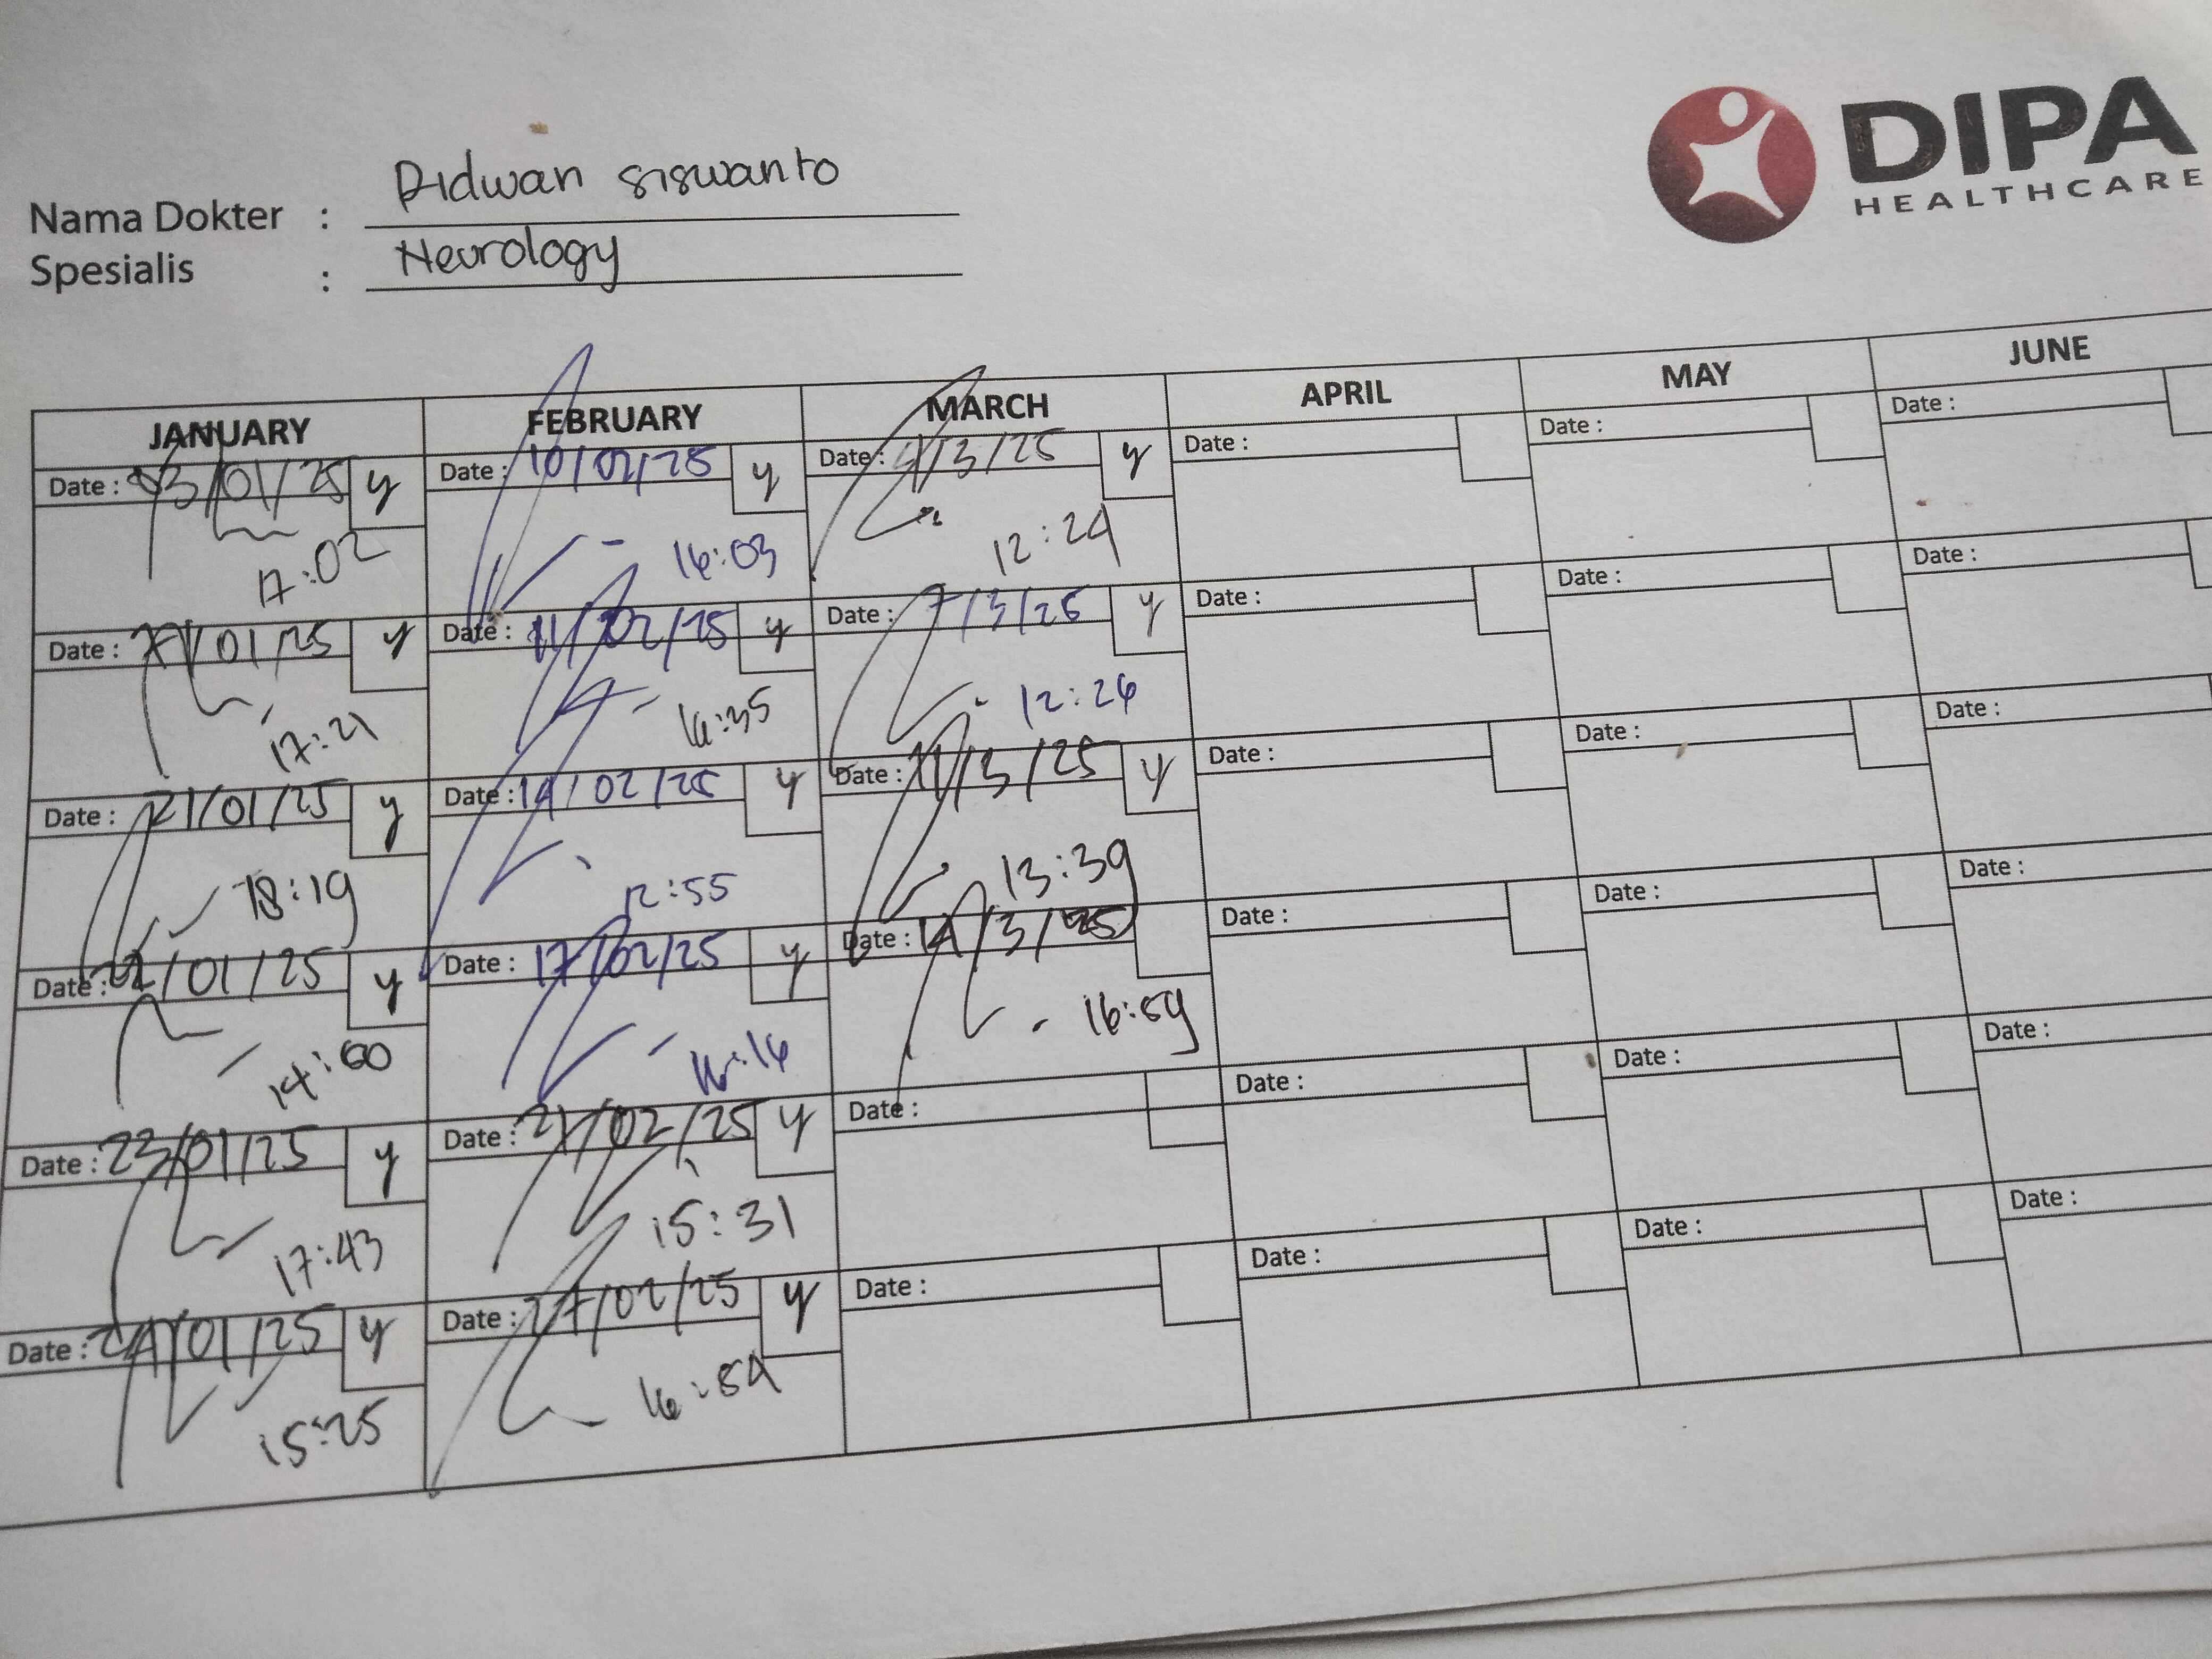 DIPA
HEALTHCARE
Nama Dokter : Ridwan siswanto
Spesialis : Neurology
JANUARY FEBRUARY MARCH APRIL MAY JUNE
Date : 03/01/25 y Date : 10/02/25 y Date : /3/25 y Date : Date : Date :
17:02 16:03 12:24
Date : /01/25 y Date : 11/02/25 y Date : 7/3/25 y Date : Date : Date :
17:21 16:35 12:26
Date : 21/01/25 y Date : 14/02/25 y Date : 11/3/25 y Date : Date : Date :
18:19 12:55 13:39
Date : 22/01/25 y Date : 17/02/25 y Date : 14/3/25 Date : Date : Date :
16:16 16:59
Date : 23/01/25 y Date : 21/02/25 y Date : Date : Date : Date :
17:43 15:31
Date : 24/01/25 y Date : 27/02/25 y Date : Date : Date : Date :
15:25 16:54